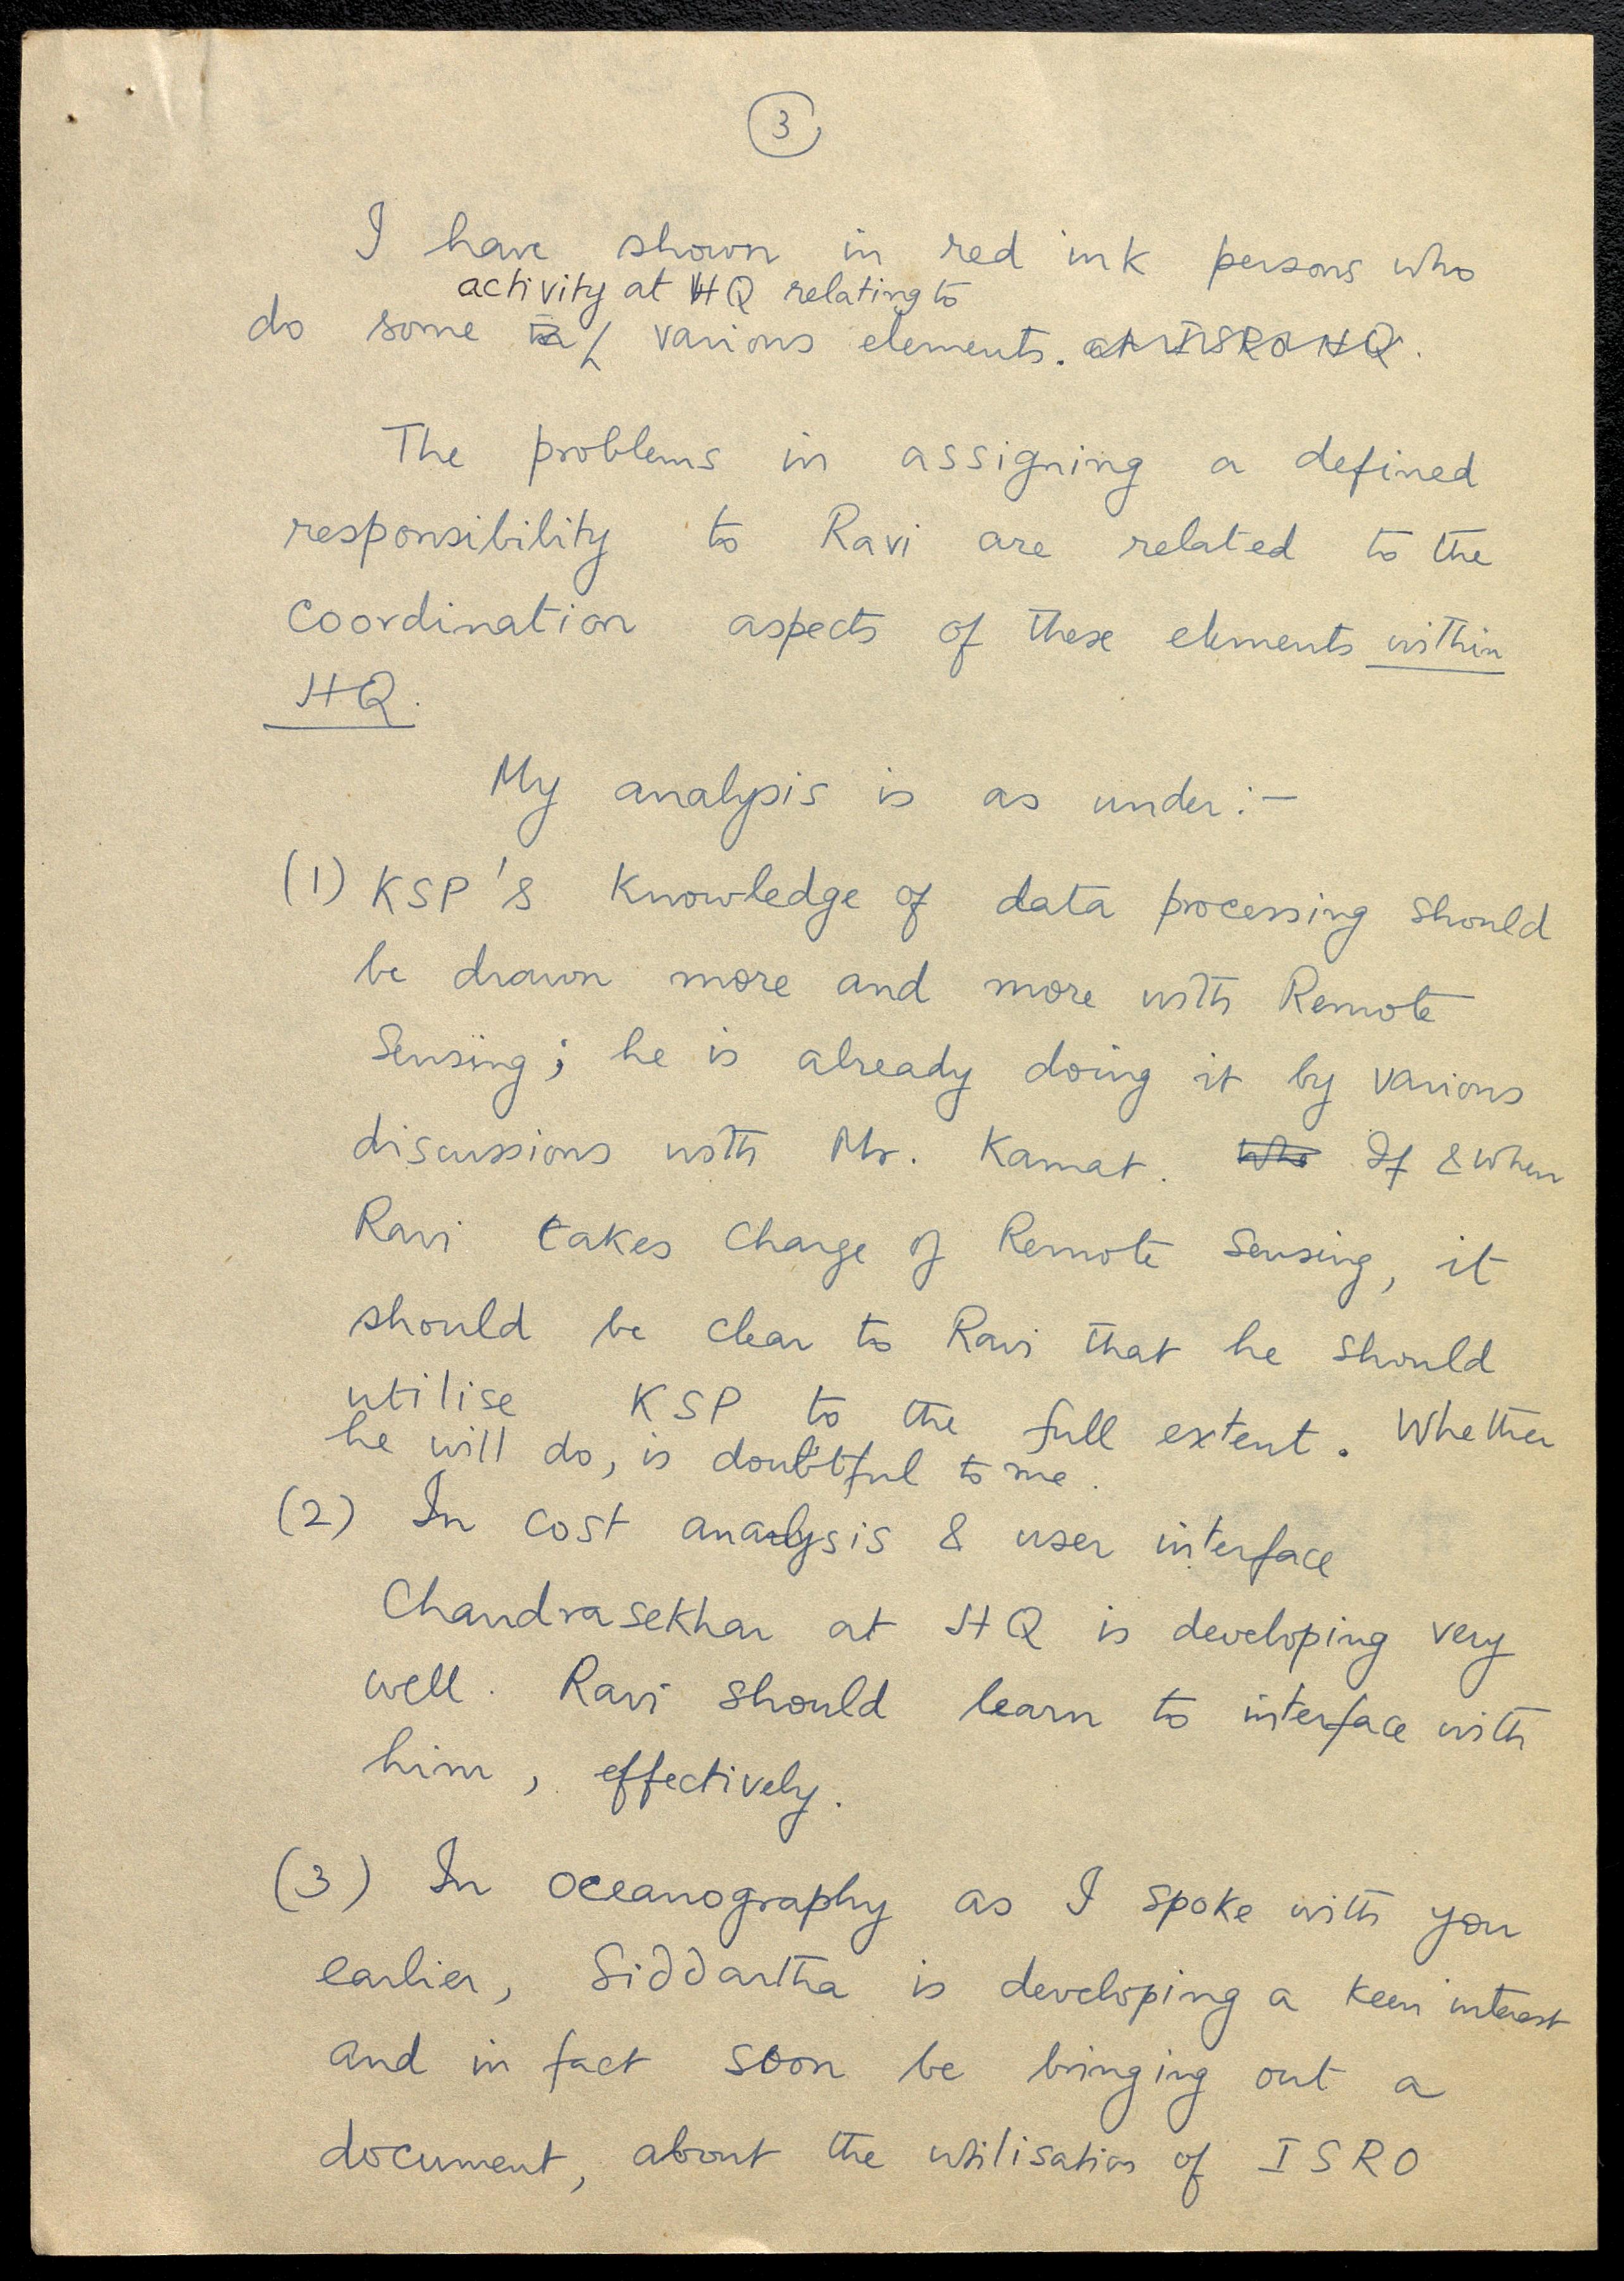 3
I have shown in red ink persons who
activity at HQ relating to
do some in various elements. at ISRO HQ.
The problems in assigning a defined
responsibility to Ravi are related to the
coordination aspects of these elements within
HQ.
My analysis is as under:-
(1) KSP's knowledge of data processing should
be drawn more and more with Remote
Sensing; he is already doing it by various
discussions with Mr. Kamat. Who If & when
Ravi takes charge of Remote Sensing, it
should be clear to Ravi that he should
utilise KSP to the full extent. Whether
he will do, is doubtful to me.
(2) In cost analysis & user interface
Chandrasekhar at HQ is developing very
well. Ravi should learn to interface with
him, effectively.
(3) In oceanography as I spoke with you
earlier, Siddartha is developing a keen interest
and in fact soon be bringing out a
document, about the utilisation of ISRO